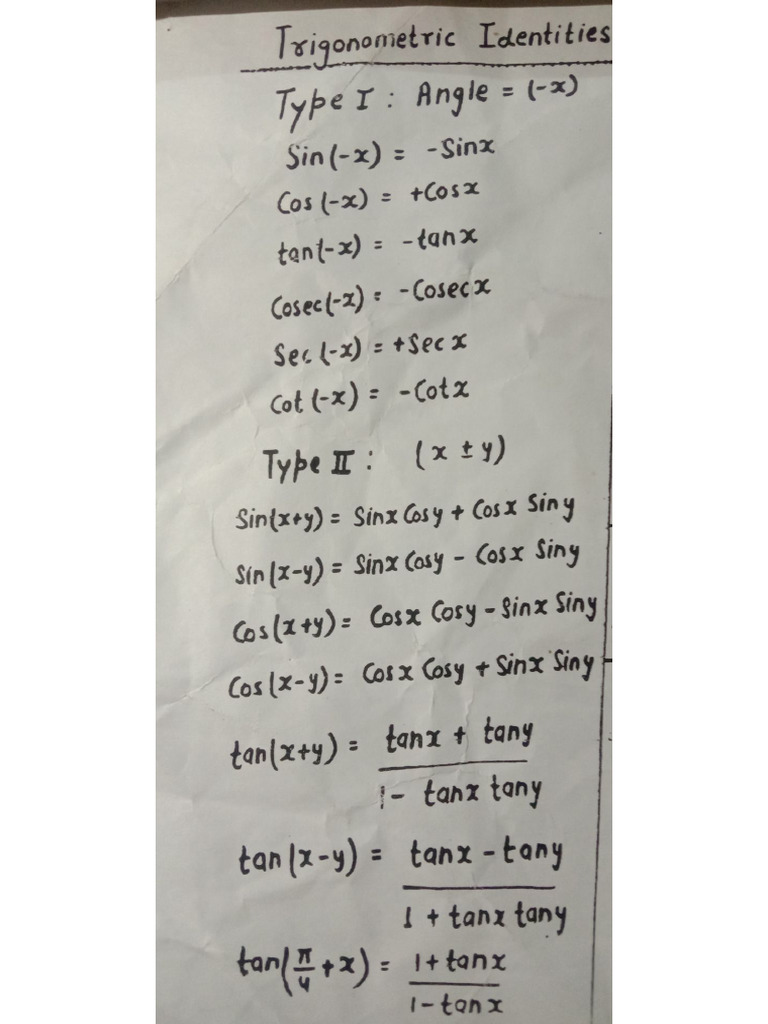 Trigonometric Identities
Type I : Angle = (-x)
Sin(-x) = -Sinx
Cos(-x) = +Cosx
tan(-x) = -tanx
Cosec(-x) = -Cosecx
Sec(-x) = +Secx
Cot(-x) = -Cotx
Type II : (x ± y)
Sin(x+y) = Sinx Cosy + Cosx Siny
Sin(x-y) = Sinx Cosy - Cosx Siny
Cos(x+y) = Cosx Cosy - Sinx Siny
Cos(x-y) = Cosx Cosy + Sinx Siny
tan(x+y) = tanx + tany
1 - tanx tany
tan(x-y) = tanx - tany
1 + tanx tany
tan(π/4 + x) = 1+tanx
1-tanx